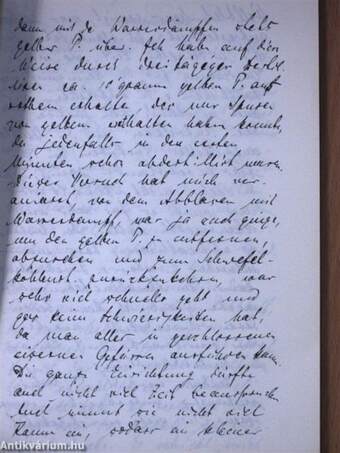 dann mit de Wasserdämpfen steht
gelber P. über. Ich habe auf diese
Weise durch dreitägiges
ca. 10 gramm gelben P. aus
rothem erhalten, der nur Spuren
von gelbem enthalten haben konnte,
die jedenfalls in den ersten
Minuten schon abdestillirt waren.
Dieser Versuch hat mich ver-
anlasst, von dem Abblasen mit
Wasserdampf, war ja auch ginge,
um den gelben P. zu entfernen,
abzusehen und zum Schwefel-
kohlenst. zurückzukehren, was
sehr viel schneller geht und
gar keine Schwierigkeiten hat,
da man alles in geschlossenen
eisernen Gefässen ausführen kann.
Die ganze Einrichtung dürfte
auch nicht viel Zeit beanspruchen
Auch nimmt sie nicht viel
Raum ein, sodass ein kleiner
Antikvárium.hu